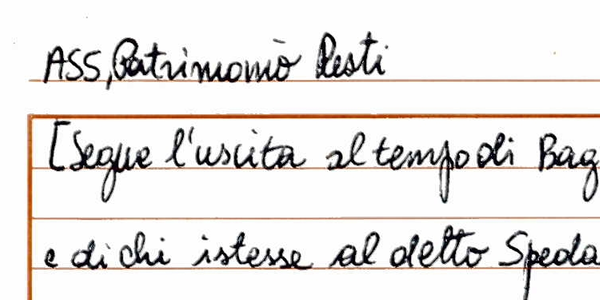 ASS, Patrimonio Resti
[Segue l'uscita al tempo di Bag
e di chi istesse al detto Speda